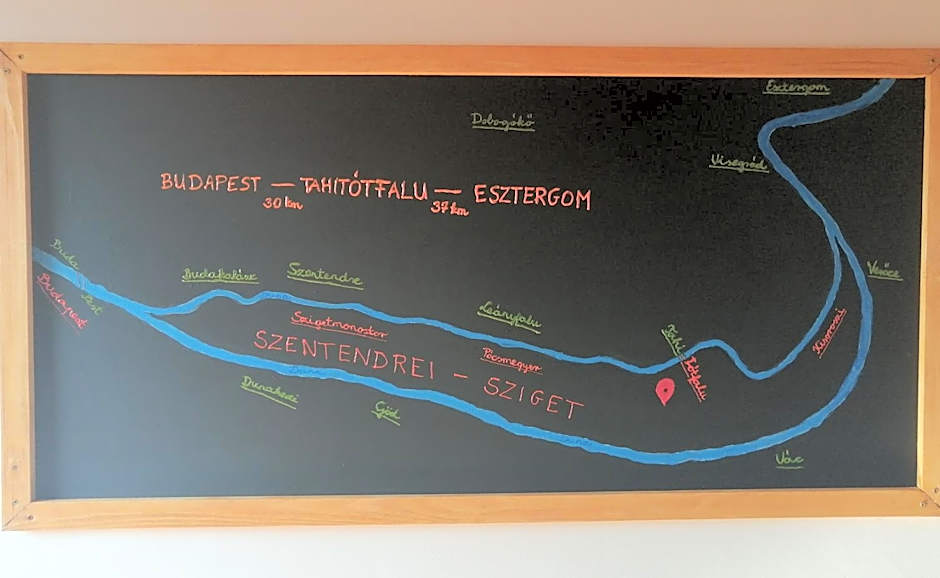 Esztergom
Dobogókő
Visegrád
BUDAPEST — TAHITÓTFALU — ESZTERGOM
30 km 37 km
Buda Pest
Budapest
Budakalász
Szentendre
Verőce
Leányfalu
Szigetmonostor
Kisoroszi
Tahi Tótfalu
Pócsmegyer
SZENTENDREI - SZIGET
Duna
Dunakeszi
Göd
Vác